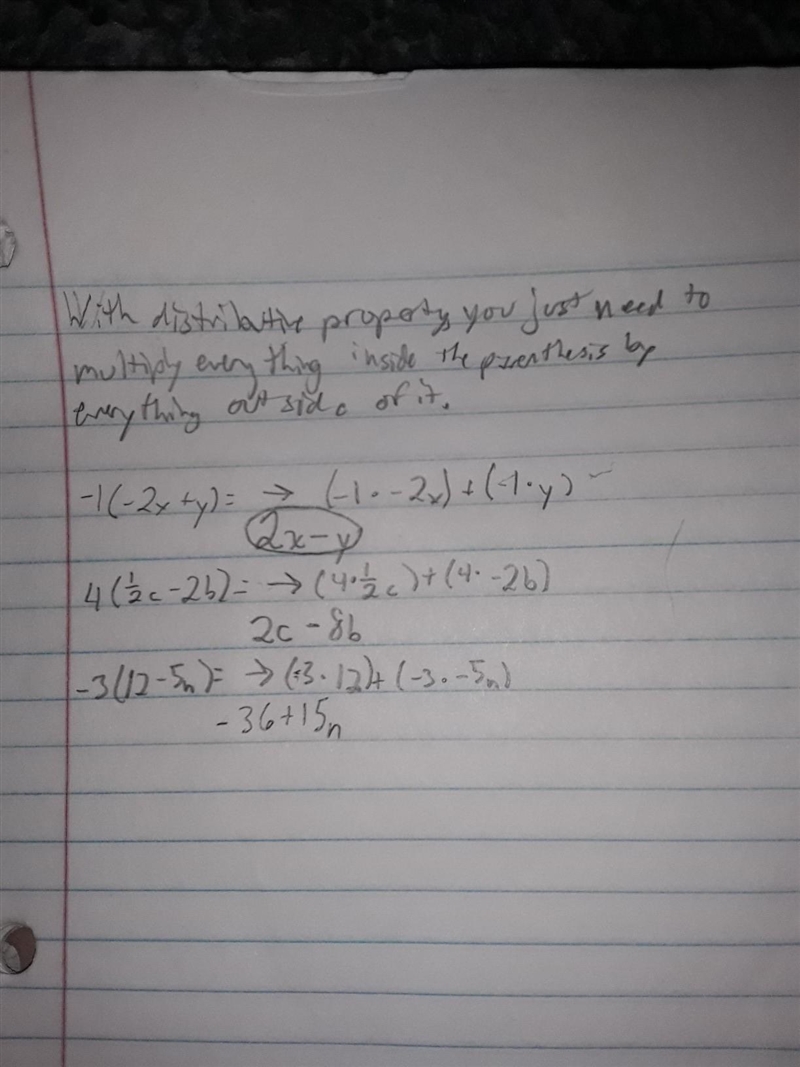 With distributive property you just need to
multiply everything inside the parenthesis by
everything outside of it.
-1(-2x+y)= → (-1 · -2x)+(-1·y)
2x-y
4(½c-2b)= → (4·½c)+(4· -2b)
2c - 8b
-3(12-5n)= → (-3·12)+(-3·-5n)
-36+15n